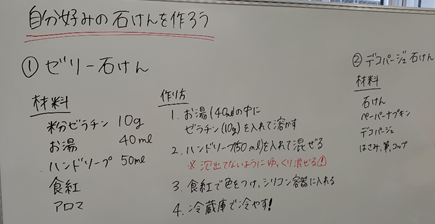 自分好みの石けんを作ろう
① ゼリー石けん
材料
粉ゼラチン 10g
お湯 40ml
ハンドソープ 50ml
食紅
アロマ
作り方
1. お湯(40mlの中に
ゼラチン(10g)を入れて溶かす
2. ハンドソープ(50ml)を入れて混ぜる
※泡出てないようにゆっくり混ぜる!
3. 食紅で色をつけ、シリコン容器に入れる
4. 冷蔵庫で冷やす!
② デコパージュ石けん
材料
石けん
ペーパーナプキン
デコパージュ
はさみ、筆、コップ